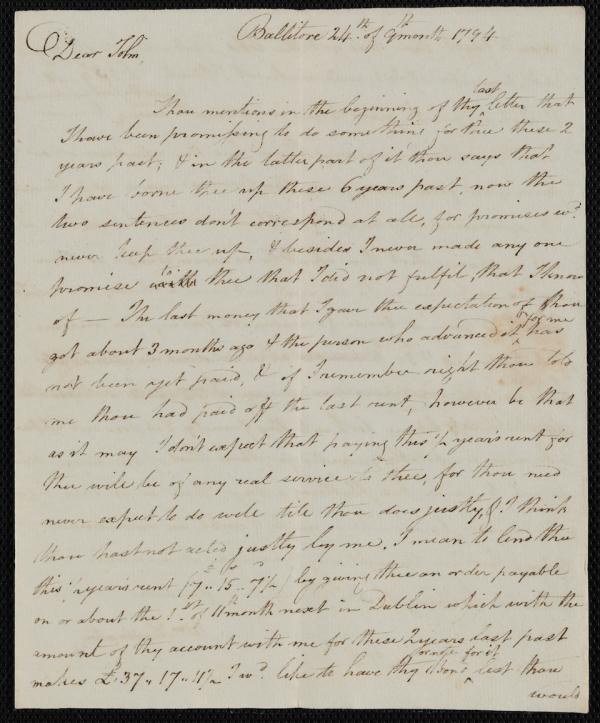 Ballitore 24th of 9th month 1794
Dear John,
Thou mentions in the beginning of thy last letter that
I have been promissing to do something for thee these 2
years past; & in the latter part of it thou says that
I have borne thee up these 6 years past, now the
two sentences don't correspond at all, for promises wd.
never keep thee up, & besides I never made any one
promise to thee that I did not fulfil, that I know
of — The last money that I gave thee expectation of thou
got about 3 months ago & the person who advanced it for me has
not been yet paid, & if I remember right thou told
me thou had paid off the last rent, however be that
as it may I don't expect that paying this ½ year's rent for
thee will be of any real service to thee, for thou need
never expect to do well till thou does justly, & I think
thou hast not acted justly by me. I mean to lend thee
this ½ year's rent (7 " 15 " 7½) by giving thee an order payable
on or about the 1st of 11th month next in Dublin which with the
amount of thy account with me for these 2 years last past
makes £37 " 17 " 11½ I wd. like to have thy bond or note for it lest thou
would